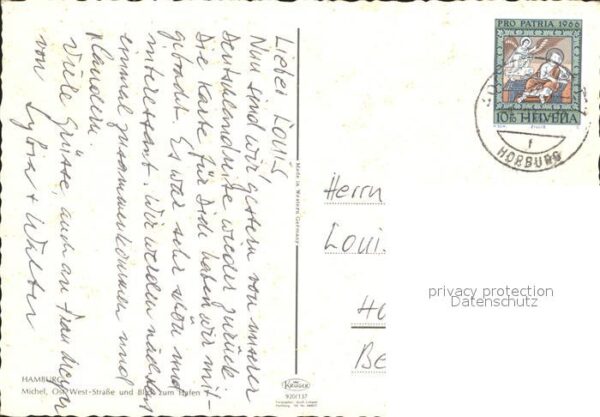 Lieber Louis
Nun sind wir gestern von unserer
Deutschlandreise wieder zurück.
Die Karte für Dich haben wir mit-
gebracht. Es war sehr schön und
interessant. Wir werden nächstens
einmal zusammenkommen und
plaudern.
Viele Grüsse, auch an Frau Meyer
von Sylvia + Walter
HAMBURG
Michel, Ost-West-Straße und Blick zum Hafen
Made in Western Germany
KRÜGER
920/137
PRO PATRIA 1966
10+10 HELVETIA
HORBURG
Herrn
Louis
Ho
Be
privacy protection
Datenschutz